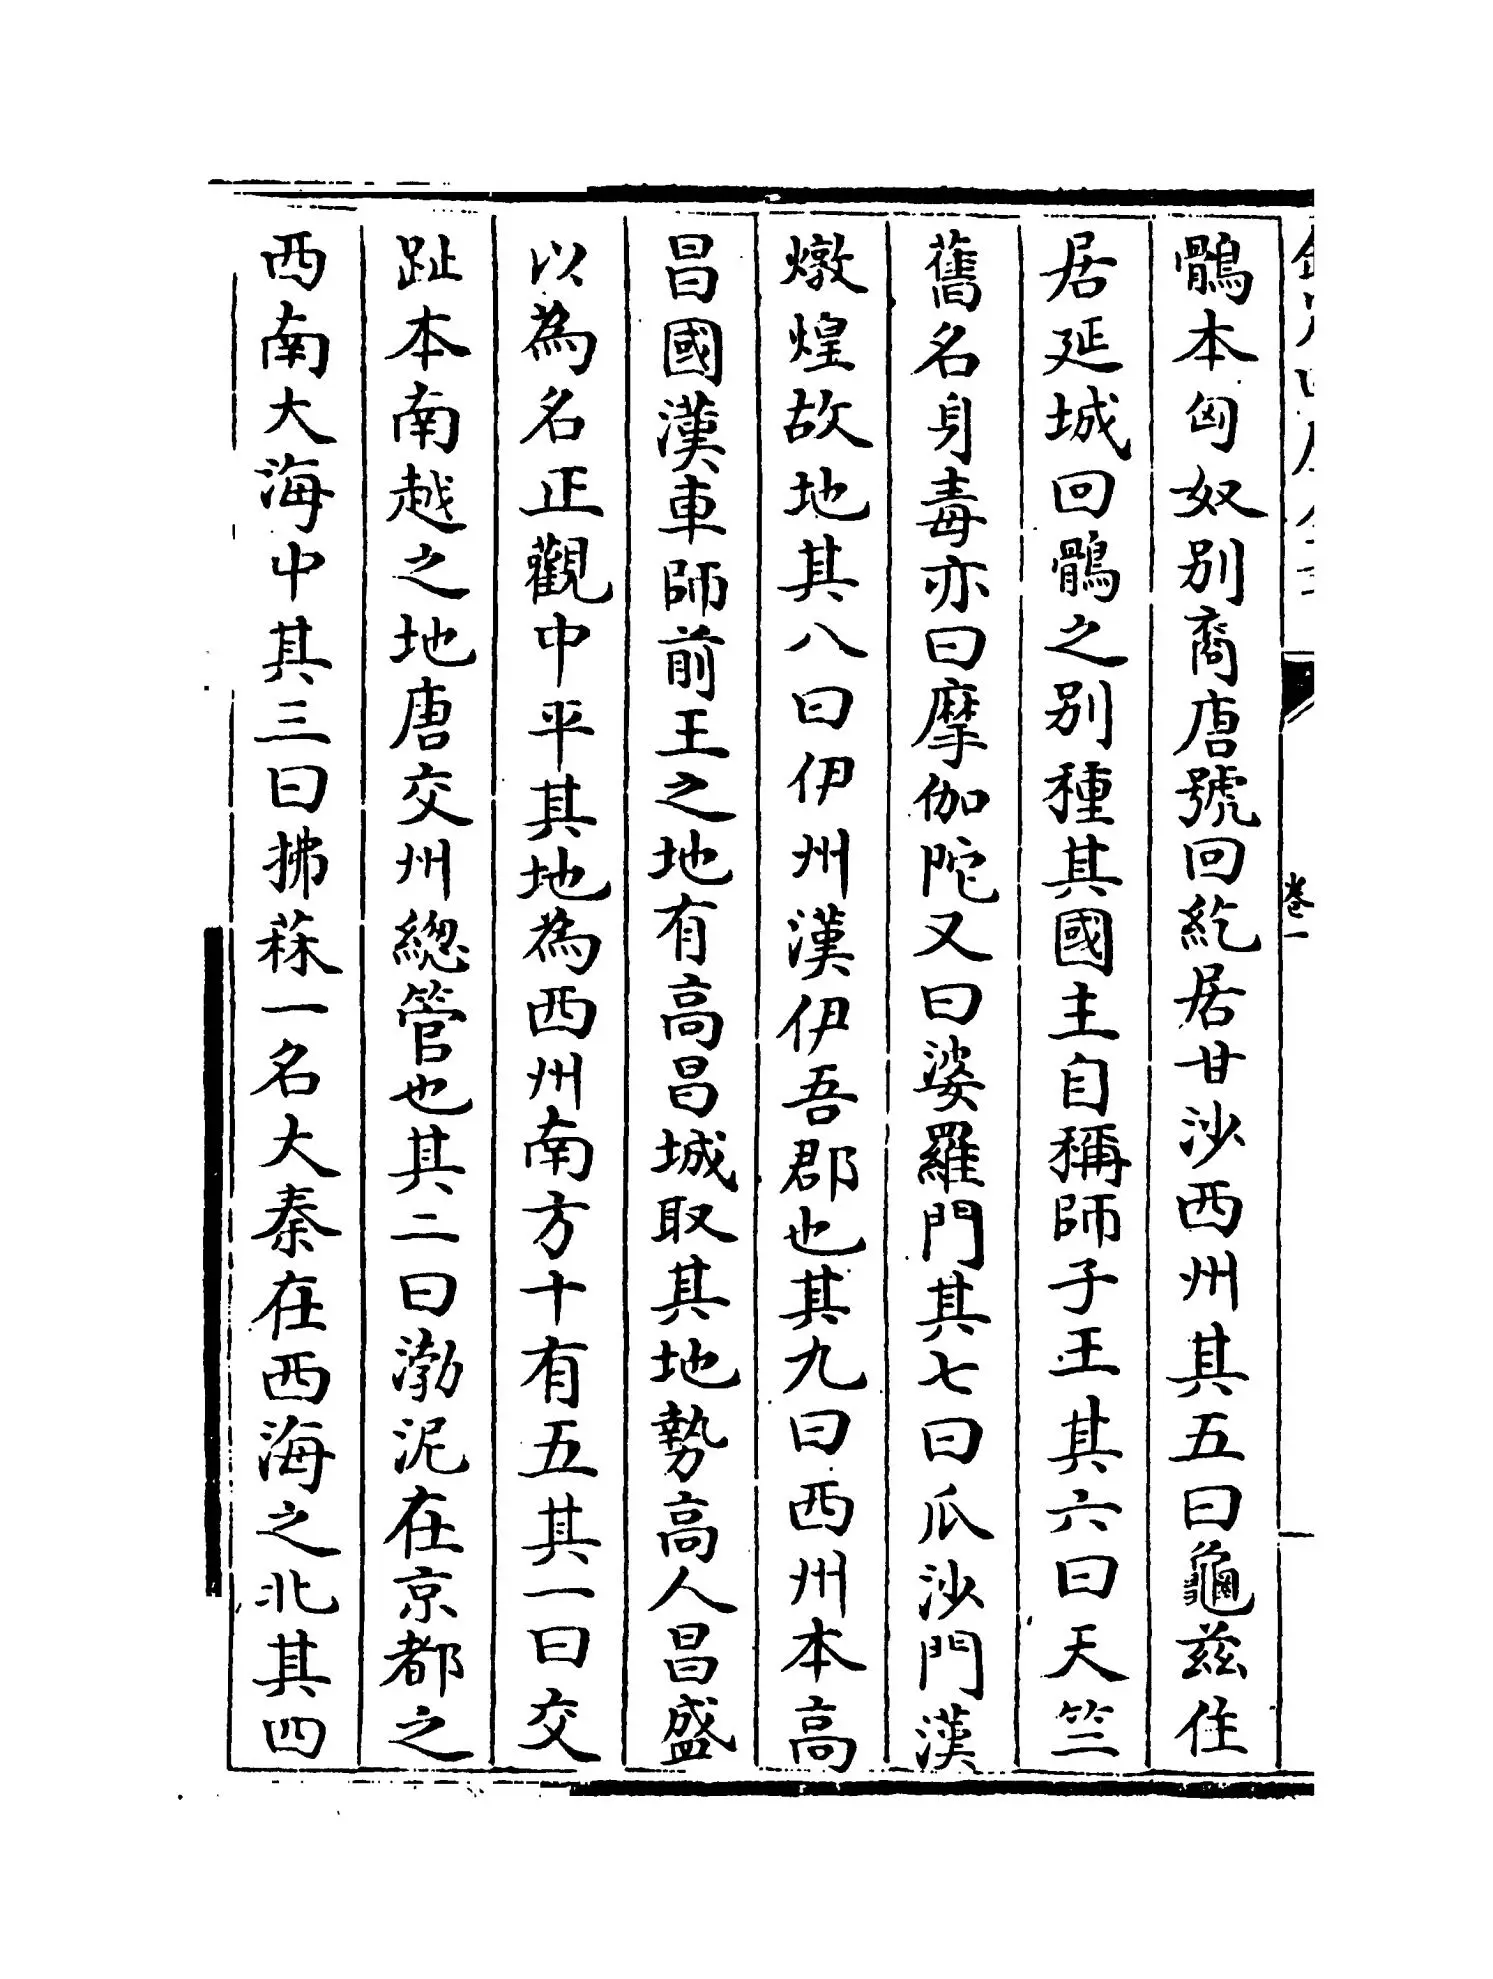 卷一
鶻本匈奴別裔唐號回紇居甘沙西州其五曰龜茲住
居延城回鶻之別種其國主自稱師子王其六曰天竺
舊名身毒亦曰摩伽陀又曰婆羅門其七曰瓜沙門漢
燉煌故地其八曰伊州漢伊吾郡也其九曰西州本高
昌國漢車師前王之地有高昌城取其地勢高人昌盛
以為名正觀中平其地為西州南方十有五其一曰交
趾本南越之地唐交州總管也其二曰渤泥在京都之
西南大海中其三曰拂菻一名大秦在西海之北其四